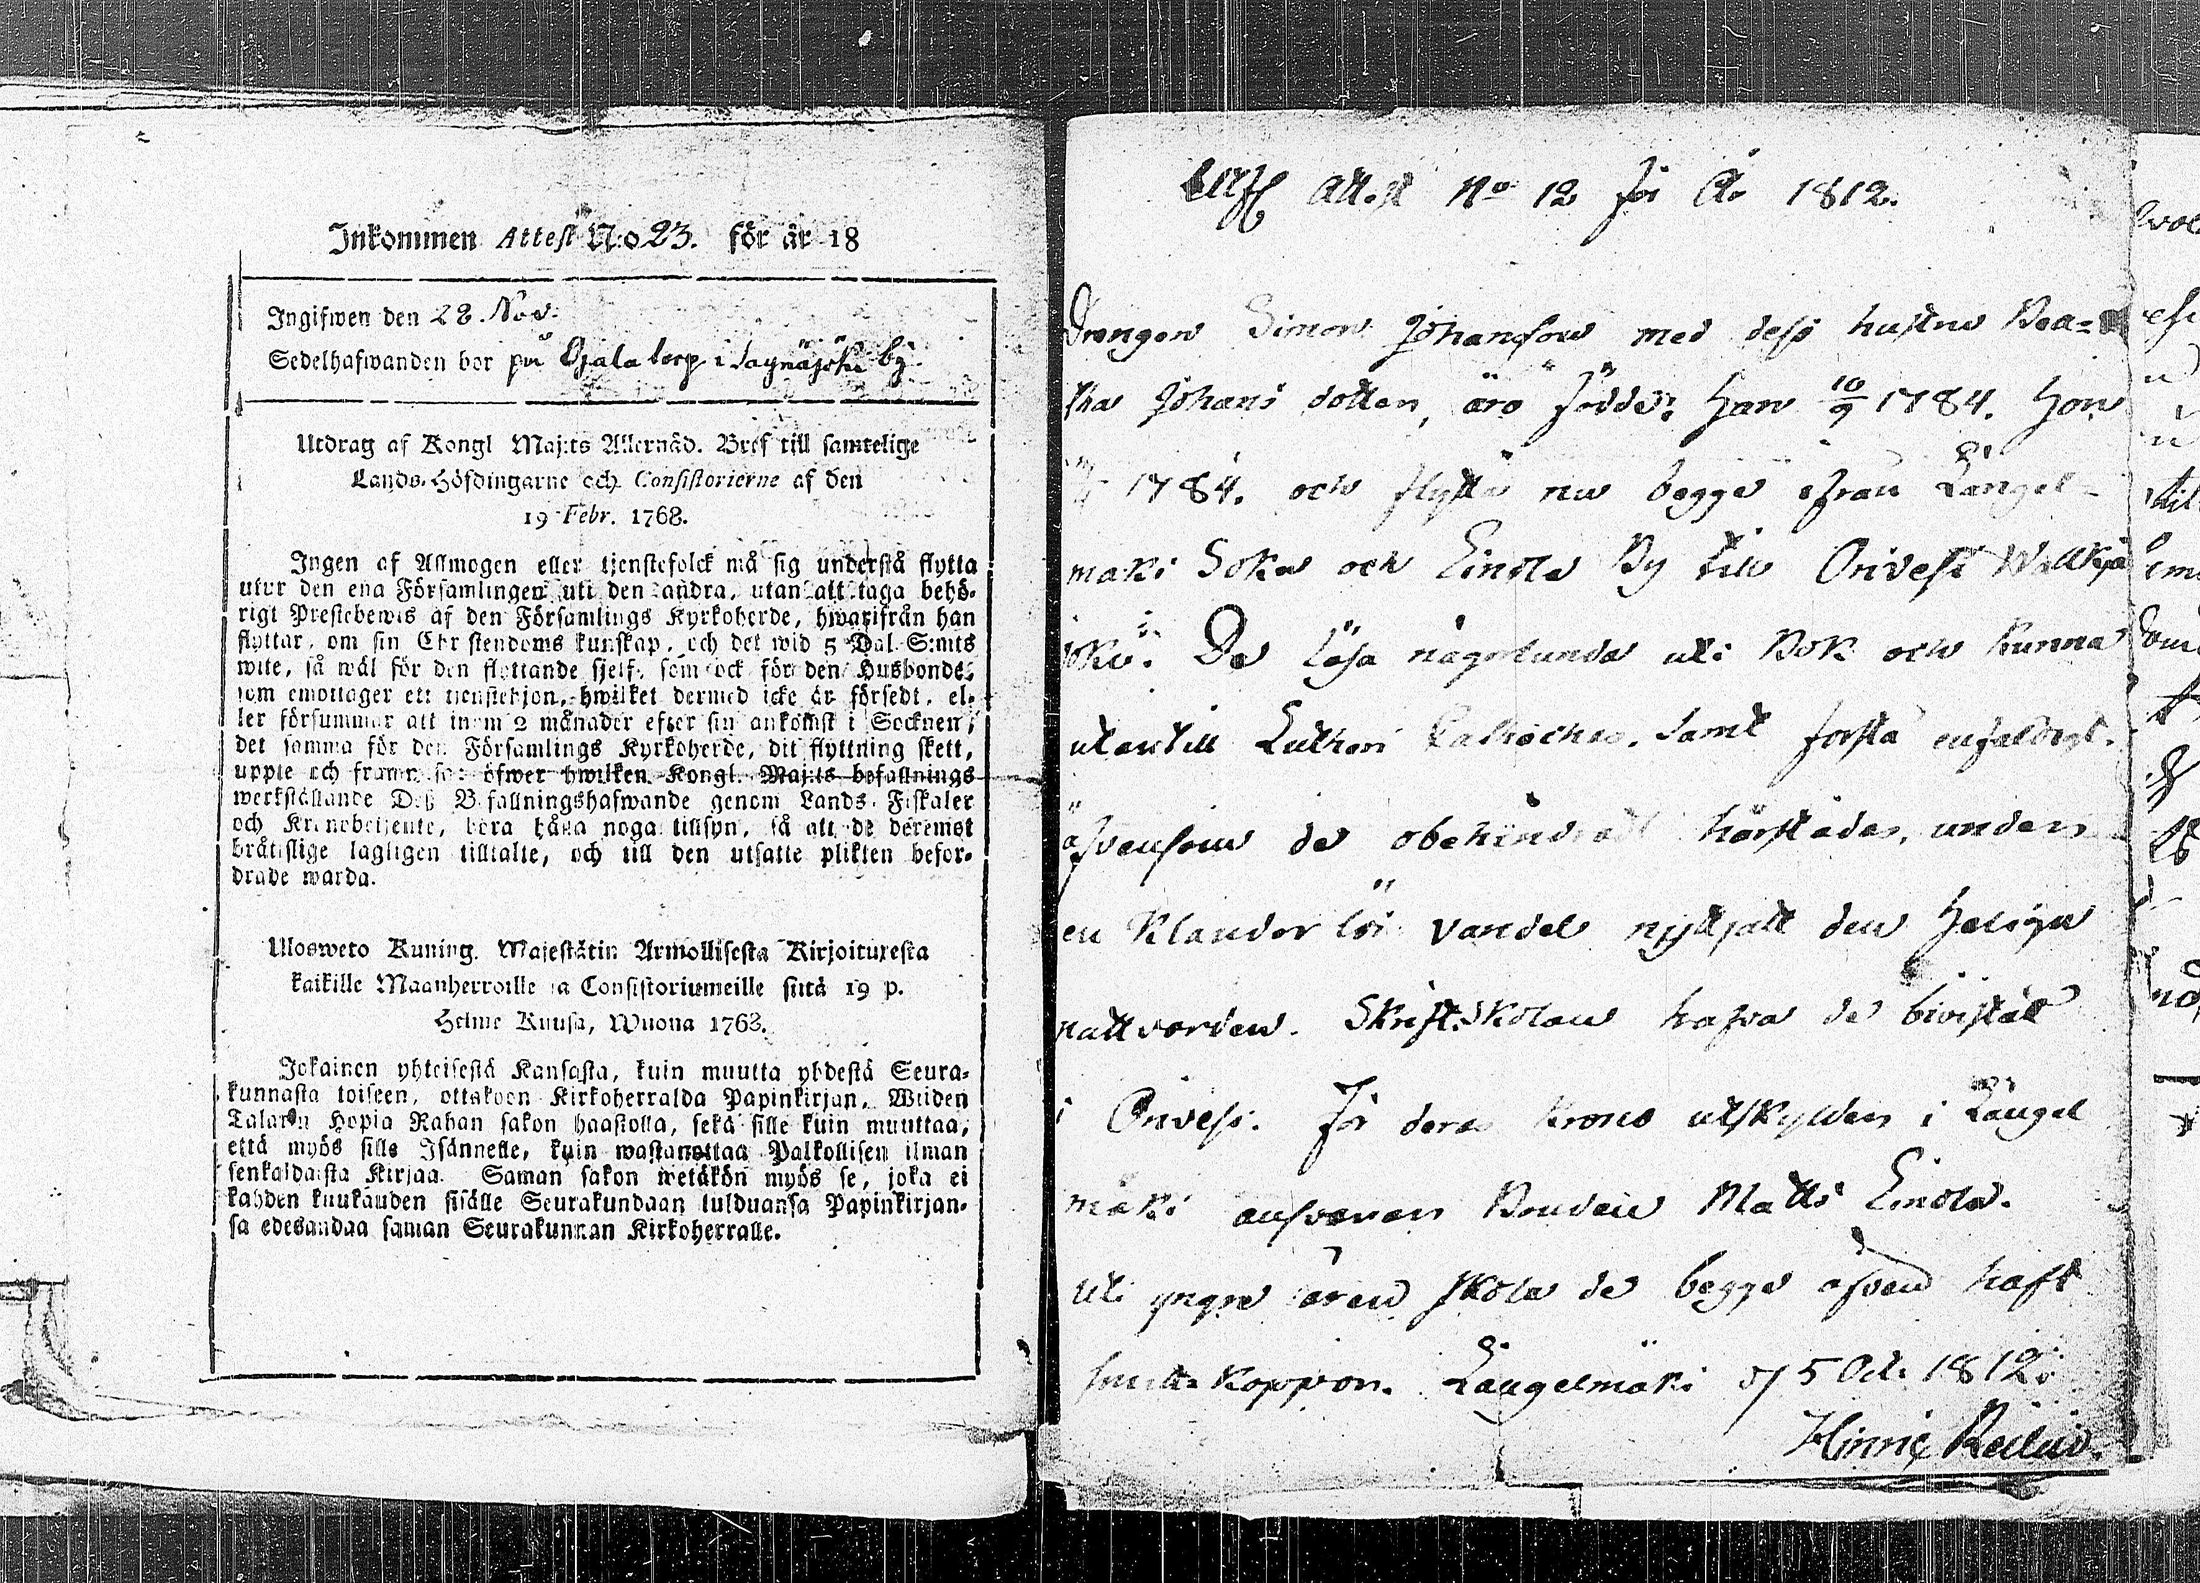 Inkommen Attest N:o 23. för år 18
Ingifwen den 28. Nov.
Sedelhafwanden bor på Ojala torp i Saynäjöki by
Utdrag af Kongl Maj:ts Allernåd. Bref till samtelige
Lands-Höfdingarne och Consistorierne af den
19 Febr. 1768.
Ingen af Allmogen eller tjenstefolck må sig understå flytta
utur den ena Församlingen uti den andra, utan att taga behö-
rigt Prestebewis af den Församlings Kyrkoherde, hwarifrån han
flyttar, om sin Christendoms kunskap, och det wid 5 Dal. S:mts
wite, så wäl för den flyttande sjelf, som ock för den Husbonde,
som emottager ett tjenstehjon, hwilket dermed icke är försedt, el-
ler försummar att inom 2 månader efter sin ankomst i Socknen,
det samma för den Församlings Kyrkoherde, dit flyttning skett,
uppte och framwisa: öfwer hwilken Kongl. Maj:ts befallnings
werkställande Deß Befallningshafwande genom Lands-Fiskaler
och Kronobetjente, böra hålla noga tillsyn, så att de deremot
bråtslige lagligen tilltalte, och till den utsatte plikten befor-
drade warda.
Ulosweto Kuning. Majestätin Armollisesta Kirjoituxesta
kaikille Maanherroille ja Consistoriumeille siitä 19 p.
Helme Kuusa, Wuona 1768.
Jokainen yhteisestä Kansasta, kuin muutta yhdestä Seura-
kunnasta toiseen, ottakoon Kirkoherralda Papinkirjan, Wiiden
Talarin Hopia Rahan sakon haastolla, sekä sille kuin muuttaa,
että myös sille Isännelle, kuin wastanottaa Palkollisen ilman
senkaldaista Kirjaa. Saman sakon wetäkön myös se, joka ei
kahden kuukauden sisälle Seurakundaan tulduansa Papinkirjan-
sa edesandaa saman Seurakunnan Kirkoherralle.
Att.st No 12 för År 1812.
Drengen Simon Johansson med dess hustru Bea-
ta Johans dotter, äro födde: Han 10/9 1784. Hon
1784. och flytta nu begge ifrån Längel-
mäki Sokn och Einola By till Orivesi Wäkkjä
joki. De läsa någorlunda uti Bok och kunna
utantill Lutheri Catheches. samt förstå enfaldigt.
äfvensom de obehindradt härstädes, under
en klanderlös vandel nyttjat den Heliga
nattvarden. Skriftskolan hafva de bivistat
i Orivesi. För dera Krono utskylder i Längel
mäki ansvarar Bonden Matts Einola.
Uti yngre åren skola de begge äfven haft
smittkoppor. Längelmäki d 5 Oct. 1812.
Hinric